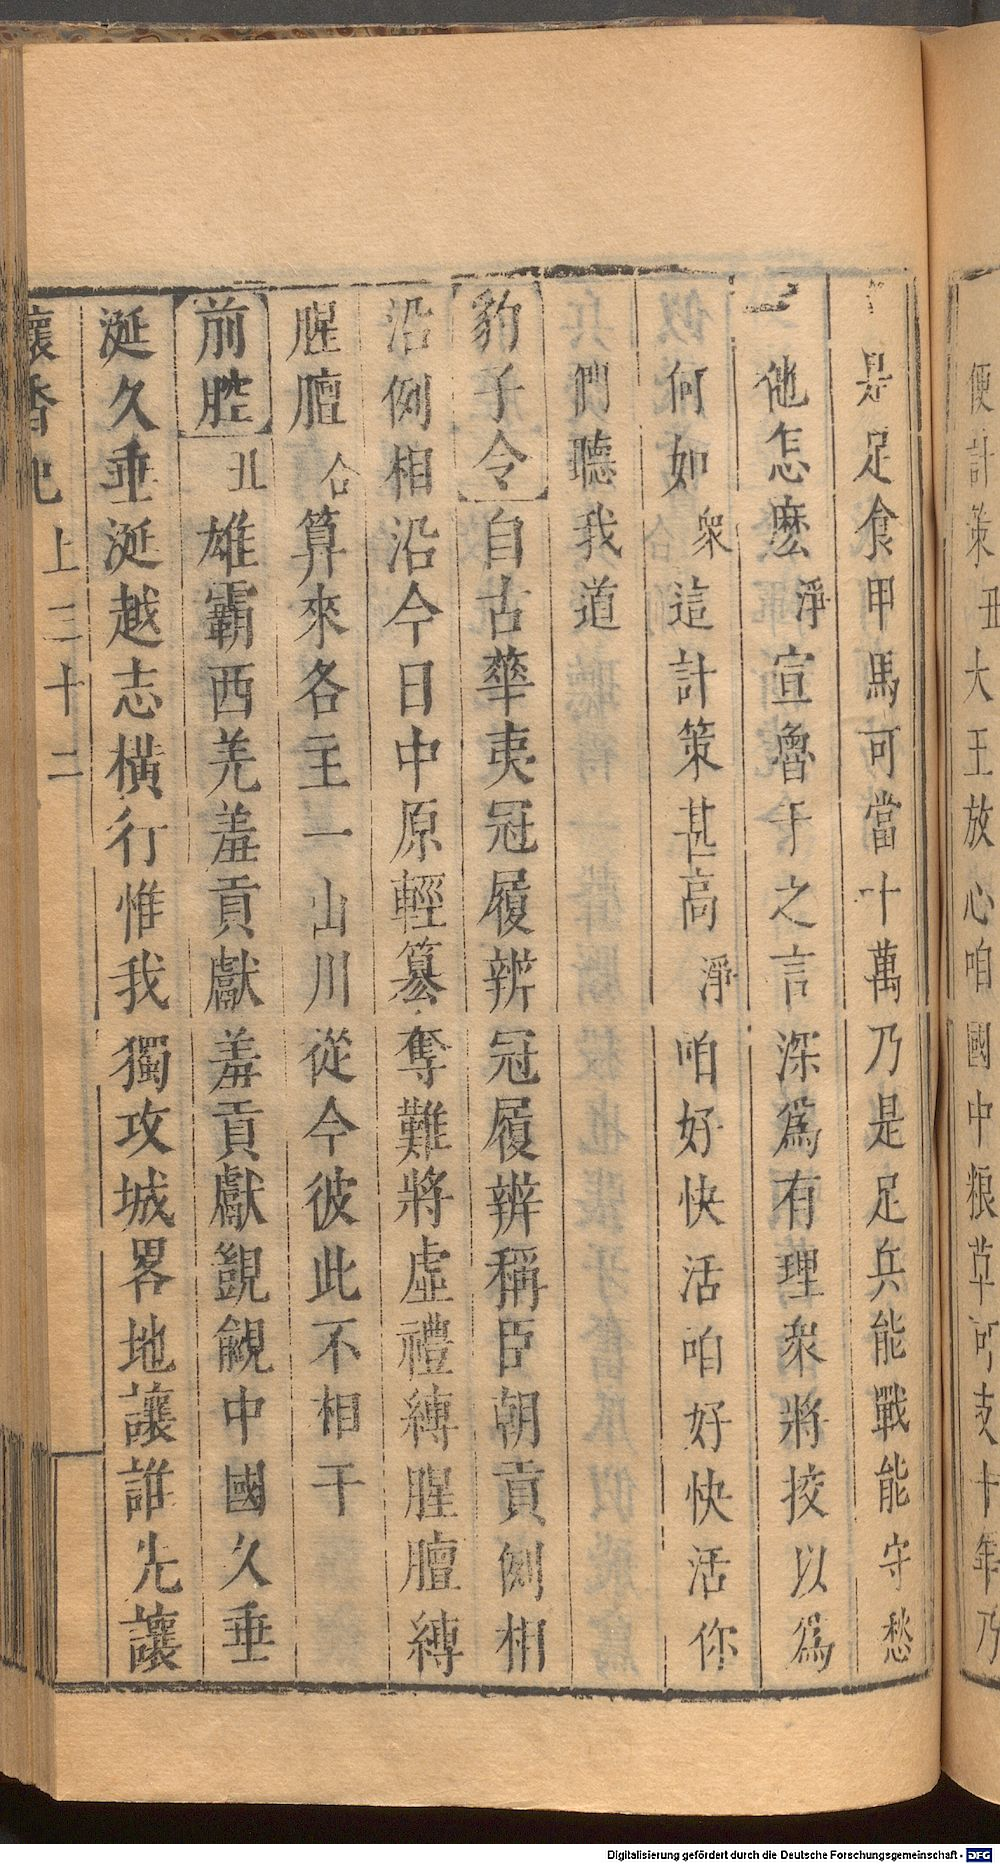 便計策丑大王放心咱國中粮草可支十年乃
是足食甲馬可當十萬乃是足兵能戰能守愁
他怎麽淨宣魯于之言深爲有理衆將挍以爲
何如衆這計策甚高淨咱好快活咱好快活你
們聽我道
豹子令自古華夷冠履辨冠履辨稱臣朝貢例相
沿例相沿今日中原輕簒奪難將虛禮縛腥膻縛
腥膻合算來各主一山川從今彼此不相干
前腔丑雄霸西羌羞貢獻羞貢獻覬覦中國久垂
涎久垂涎越志橫行惟我獨攻城畧地讓誰先讓
懷香記 上三十二
Digitalisierung gefördert durch die Deutsche Forschungsgemeinschaft - DFG